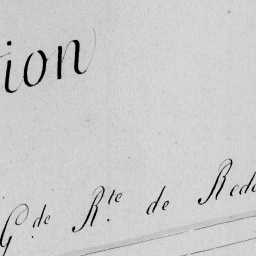 tion
G.de R.te de Redo